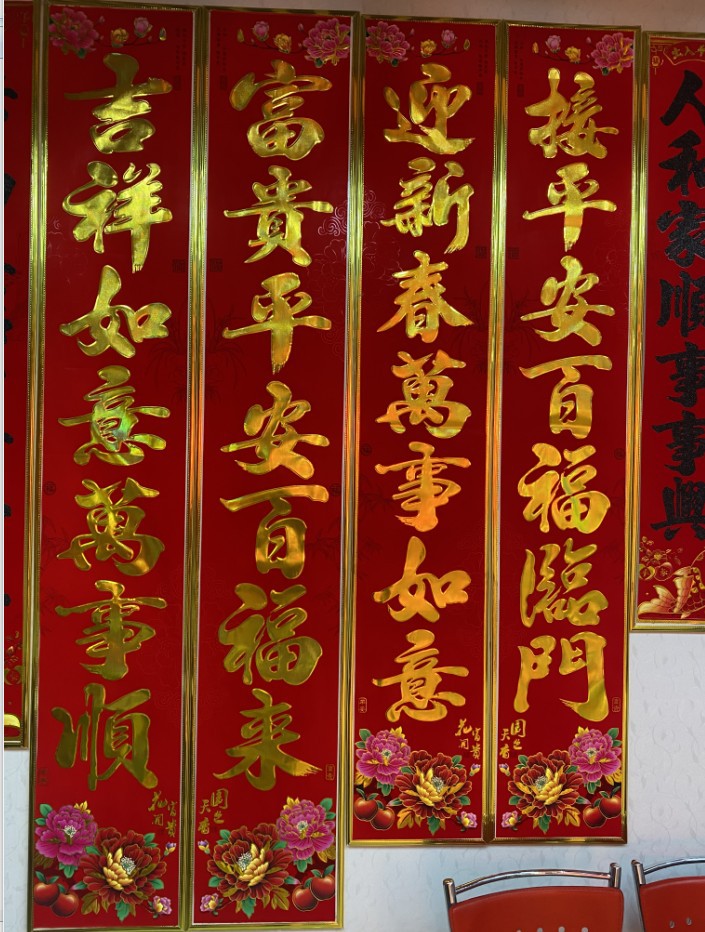 吉祥如意萬事順
富貴平安百福来
迎新春萬事如意
接平安百福臨門
人和家順事事興
花開富貴
國色天香
花開富貴
國色天香